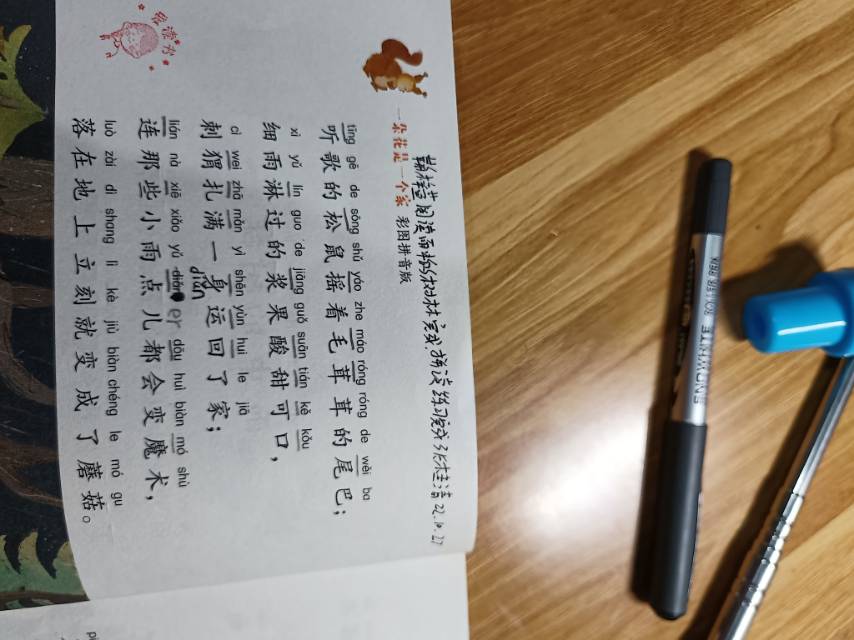 阅读 完成拼读练习 22.10.27
一朵花是一个家 彩图拼音版
tīng gē de sōng shǔ yáo zhe máo róng róng de wěi ba
听歌的松鼠摇着毛茸茸的尾巴；
xì yǔ lín guo de jiāng guǒ suān tián kě kǒu
细雨淋过的浆果酸甜可口，
cì wei zhā mǎn yì shēn yùn huí le jiā
刺猬扎满一身运回了家；
diǎn
lián nà xiē xiǎo yǔ diǎn er dōu huì biàn mó shù
连那些小雨点儿都会变魔术，
luò zài dì shang lì kè jiù biàn chéng le mó gu
落在地上立刻就变成了蘑菇。
爱读书